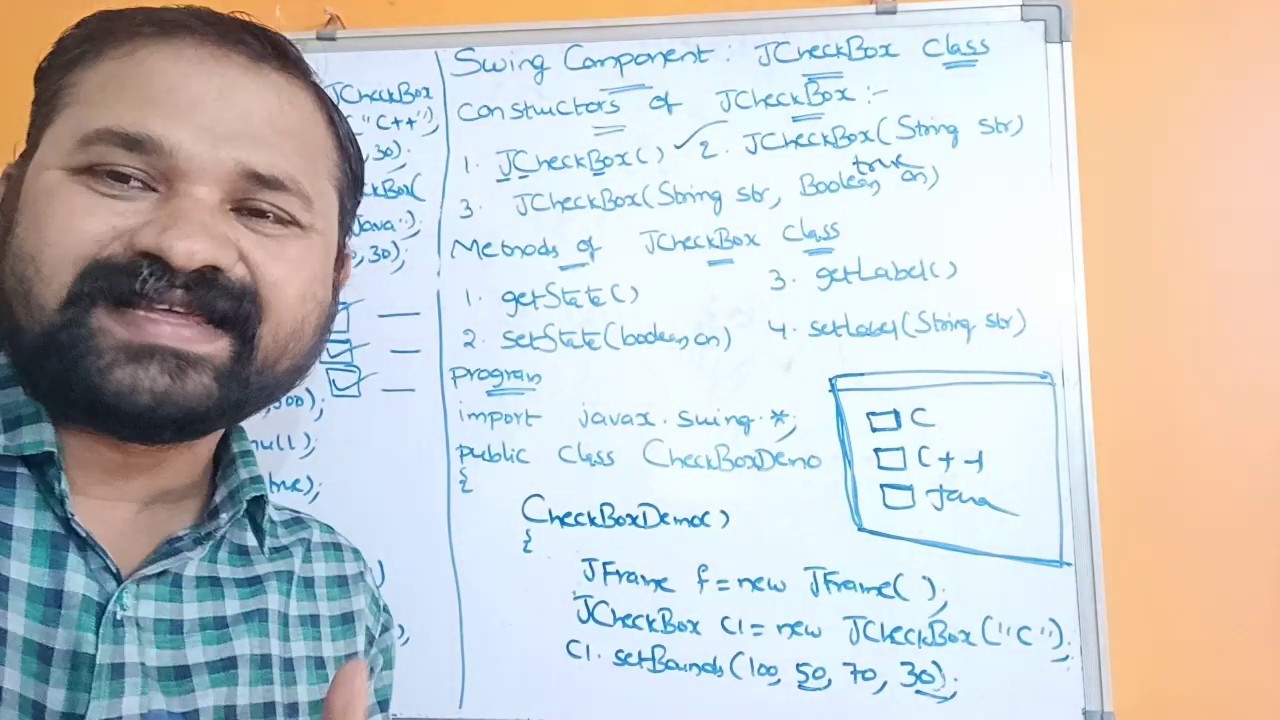 JCheckBox
("C++");
,30).
ckBox(
Java");
0,30);
,300);
null);
true);
)
);
Swing Component : JCheckBox class
Constuctors of JCheckBox :-
1. JCheckBox() ✓ 2. JCheckBox(String str)
3. JCheckBox(String str, Boolean on)
true
Methods of JCheckBox class
1. getState() 3. getLabel()
2. setState(boolean on) 4. setLabel(String str)
program
import javax.swing.*;
public class CheckBoxDemo
{
CheckBoxDemo()
{
JFrame f=new JFrame();
JCheckBox C1=new JCheckBox("C");
C1.setBounds(100, 50, 70, 30);
C
C++
Java